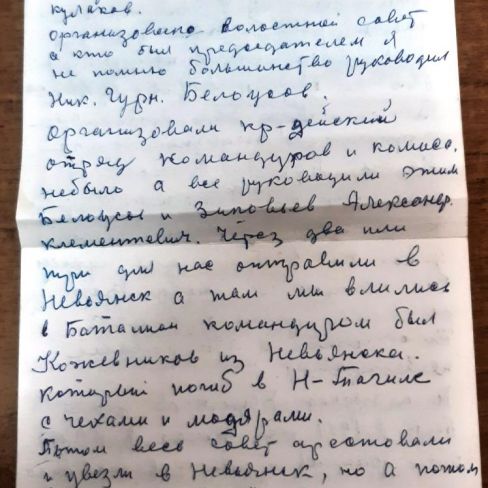 кулаков.
организовано волостной совет
а кто был председателем я
не помню большинство руководил
Ник. Гурн. Белоусов.
организовали кр-дейский
отряд командиров и комисс.
небыло а все руководили этим
Белоусов и Зиновьев Александр.
Клементевич. Через два или
три дня нас отправили в
Невьянск а там мы влились
в Баталион командиром был
Кожевников из Невьянска.
который погиб в Н-Тагиле
с чехами и мадярами.
Потом весь совет арестовали
и увезли в Невьянск, но а потом